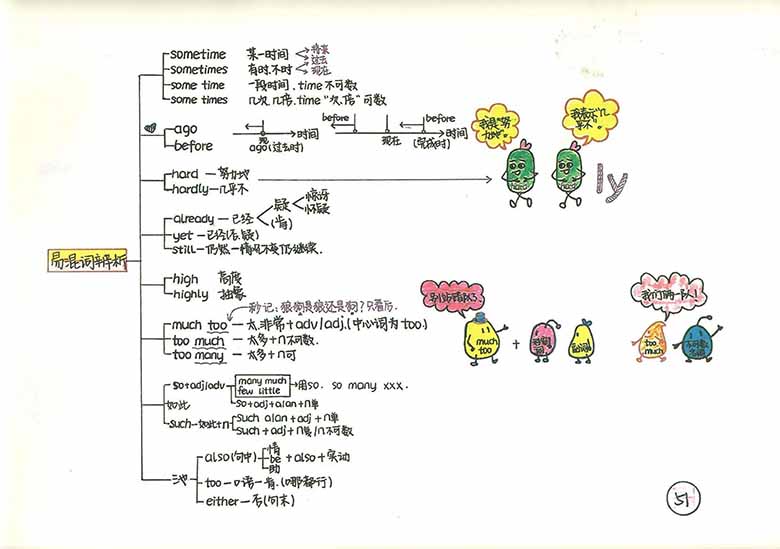 易混词辨析
sometime 某一时间 将来 过去
sometimes 有时,不时 现在
some time 一段时间,time不可数
some times 几次,几倍,time"次,倍"可数
ago
before
现在 时间
ago(过去时)
before before
现在 时间
(完成时)
hard — 努力地
hardly — 几乎不
我是"努力地"
我表示"几乎不"
hard hard
ly
already — 已经 疑 惊讶 怀疑
(肯)
yet — 已经(否,疑)
still — 仍然 — 情况不变仍继续.
high 高度
highly 抽象
秒记:狼狗是狼还是狗?只看后.
much too — 太,非常+adv/adj.(中心词为too.)
too much — 太多+n不可数.
too many — 太多+n可
别站错队了.
much too + 形容词 副词
我们俩一队!
too much 不可数名词
如此
so+adj/adv many much few little → 用so. so many xxx.
so+adj+a/an+n单
such — 如此+n such a/an + adj + n单
such + adj + n复/n不可数
也
also(句中) 情 be 助 + also + 实动
too — 口语 — 肯.(哪都行)
either — 否(句末)
51